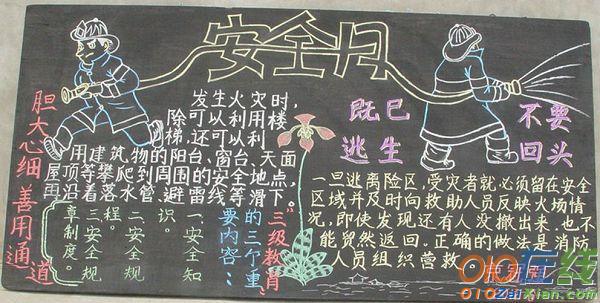 安全月
胆大心细 善用通道
发生火灾时,
除可以利用楼
梯,还可以利
用建筑物的阳台、窗台、天面
屋顶等攀爬到周围的安全地点,
再沿着落水管,避雷线等滑下。
"三级教育"
的三个重
要内容:
一、安全知
识。
二安全规
程。
三安全规
章制度。
既已
逃生
不要
回头
一旦逃离险区,受灾者就必须留在安全
区域并及时向救助人员反映火场情
况,即使发现还有人没撤出来,也不
能贸然返回。正确的做法是消防
人员组织营救。
010在线
010zaixian.com